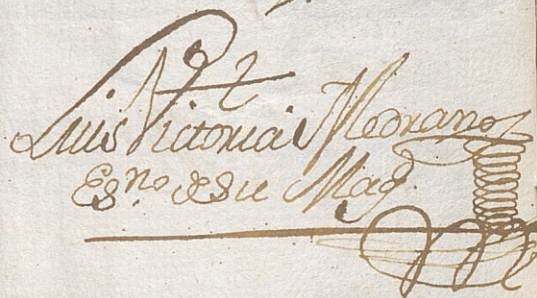 Luis Victoria Medrano
Es.no de su Mag.